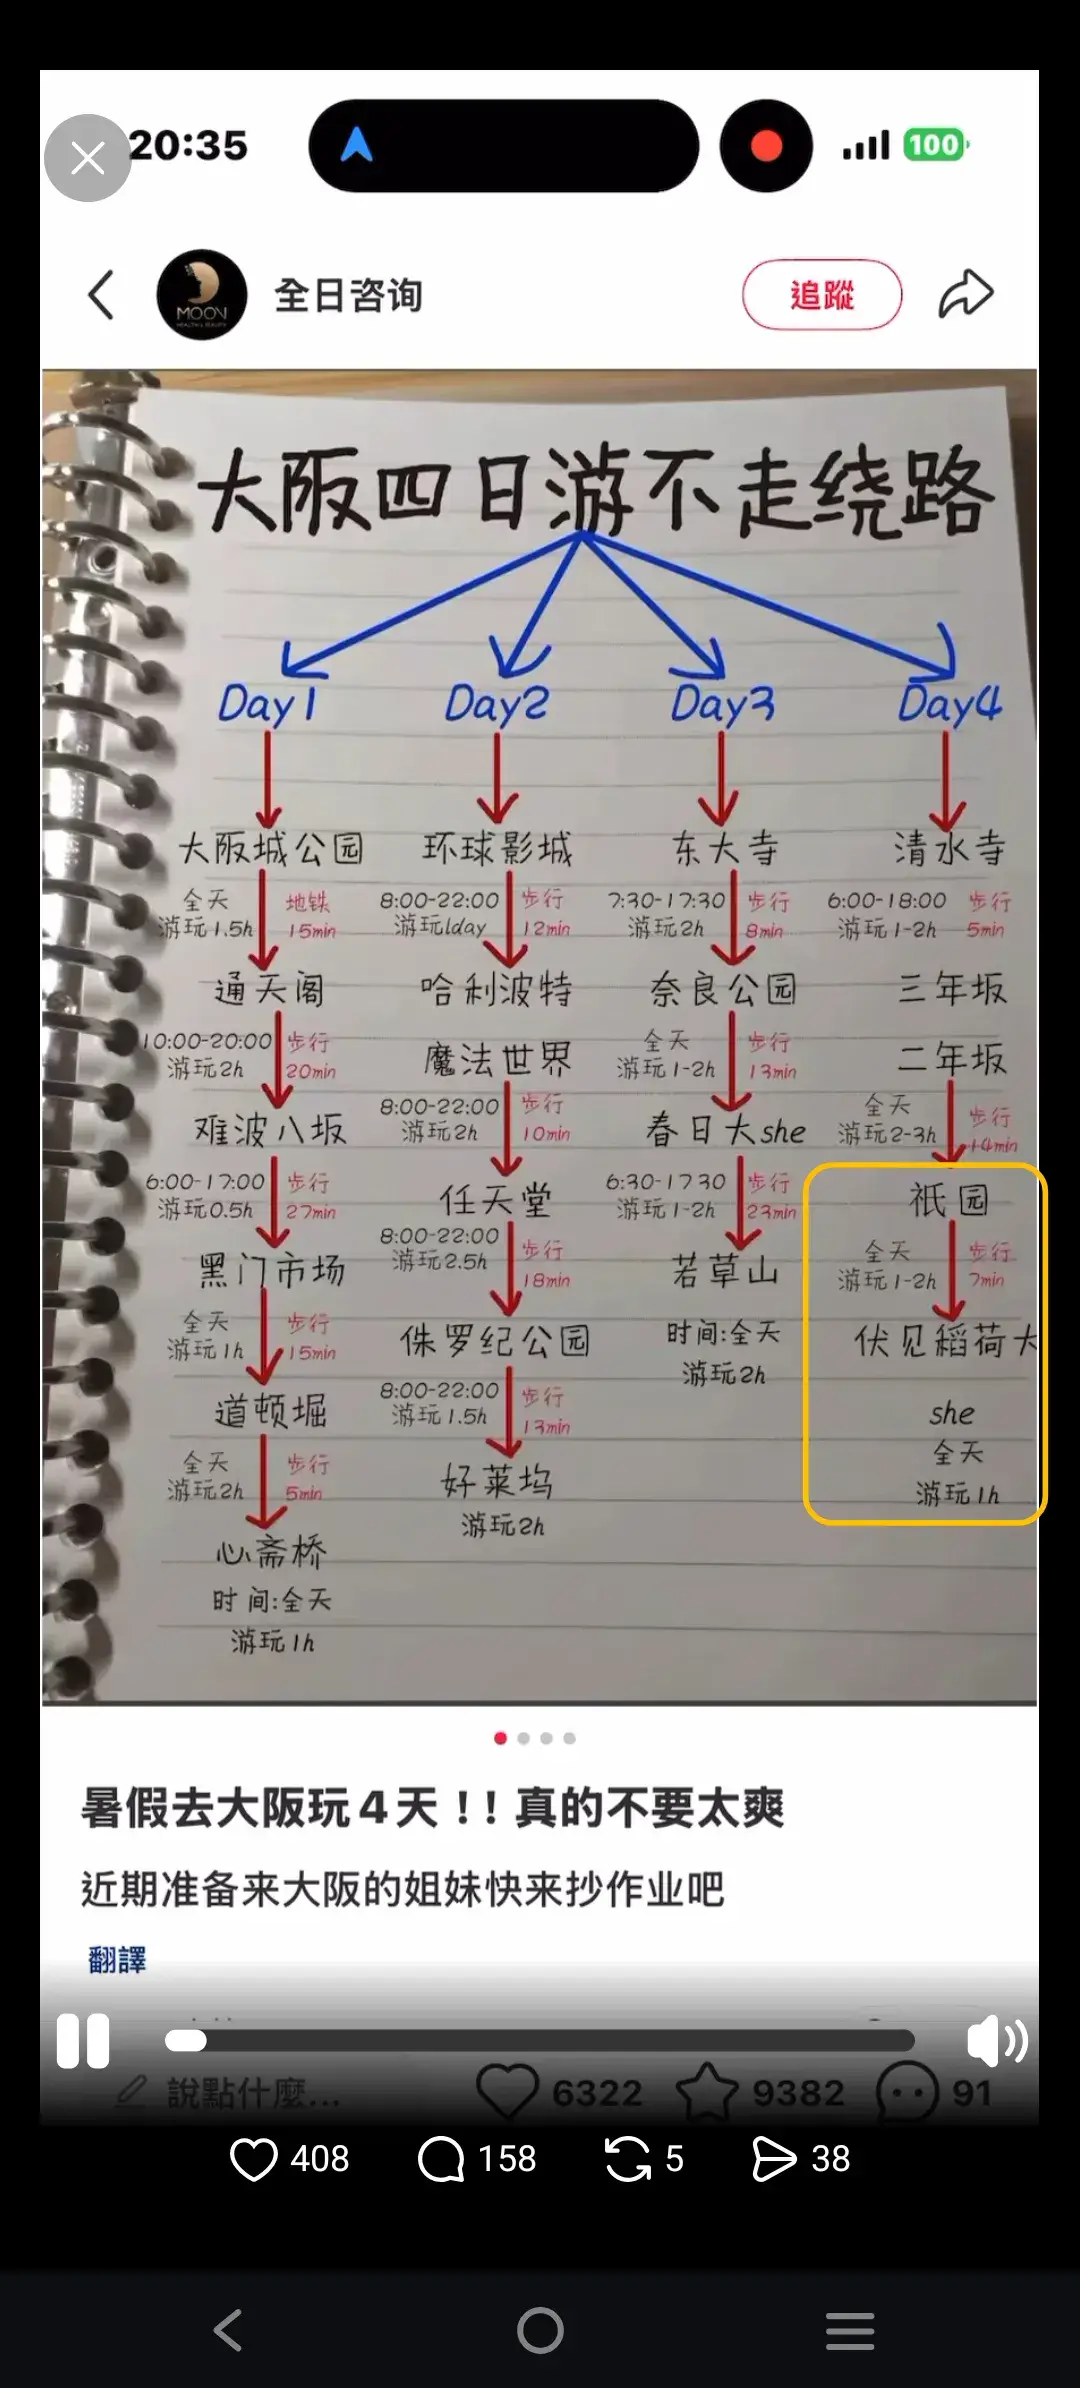 20:35
100
MOON
全日咨询
追蹤
大阪四日游不走绕路
Day1
Day2
Day3
Day4
大阪城公园
全天
游玩1.5h
地铁
15min
通天阁
10:00-20:00
游玩2h
步行
20min
难波八坂
6:00-17:00
游玩0.5h
步行
27min
黑门市场
全天
游玩1h
步行
15min
道顿堀
全天
游玩2h
步行
5min
心斋桥
时间:全天
游玩1h
环球影城
8:00-22:00
游玩1day
步行
12min
哈利波特
魔法世界
8:00-22:00
游玩2h
步行
10min
任天堂
8:00-22:00
游玩2.5h
步行
18min
侏罗纪公园
8:00-22:00
游玩1.5h
步行
13min
好莱坞
游玩2h
东大寺
7:30-17:30
游玩2h
步行
8min
奈良公园
全天
游玩1-2h
步行
13min
春日大she
6:30-1730
游玩1-2h
步行
23min
若草山
时间:全天
游玩2h
清水寺
6:00-18:00
游玩1-2h
步行
5min
三年坂
二年坂
全天
游玩2-3h
步行
14min
祇园
全天
游玩1-2h
步行
7min
伏见稻荷大
she
全天
游玩1h
暑假去大阪玩4天！！真的不要太爽
近期准备来大阪的姐妹快来抄作业吧
翻譯
說點什麼...
6322
9382
91
408
158
5
38